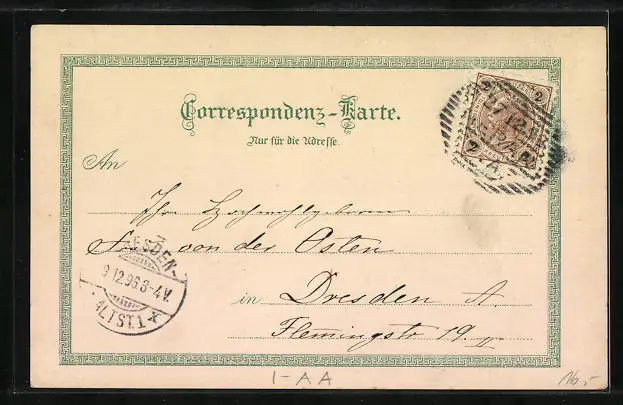 Correspondenz-Karte.
Nur für die Adresse
An
Ihr Hochwohlgeboren
von der Osten
in Dresden A.
Flemingstr 19
DRESDEN-
9.12.96.3-4V.
ALTST.1
2 2
2 2
I-AA
16.-